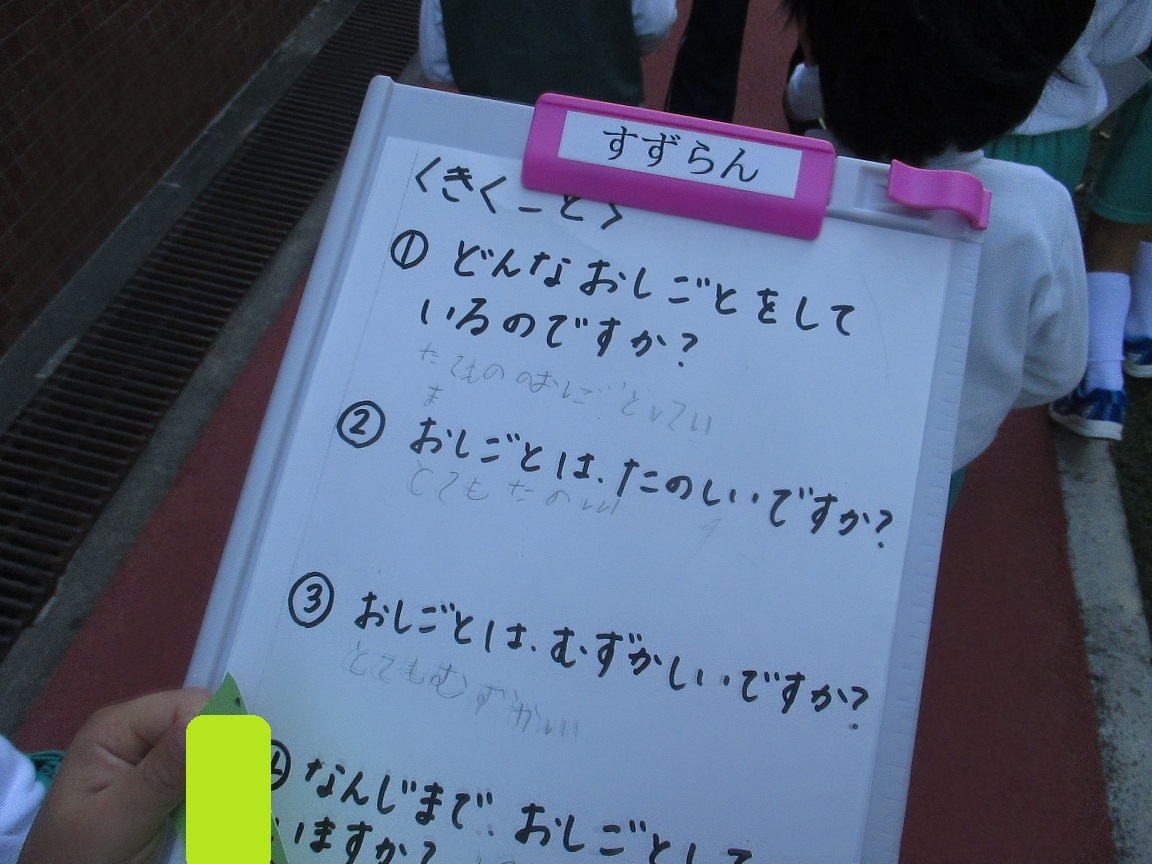 すずらん
<きくこと>
① どんなおしごとをして
いるのですか?
たてもののおしごとしてい
ま
② おしごとは、たのしいですか?
とてもたのしい
③ おしごとは、むずかしいですか?
とてもむずかしい
④ なんじまで おしごとして
いますか?